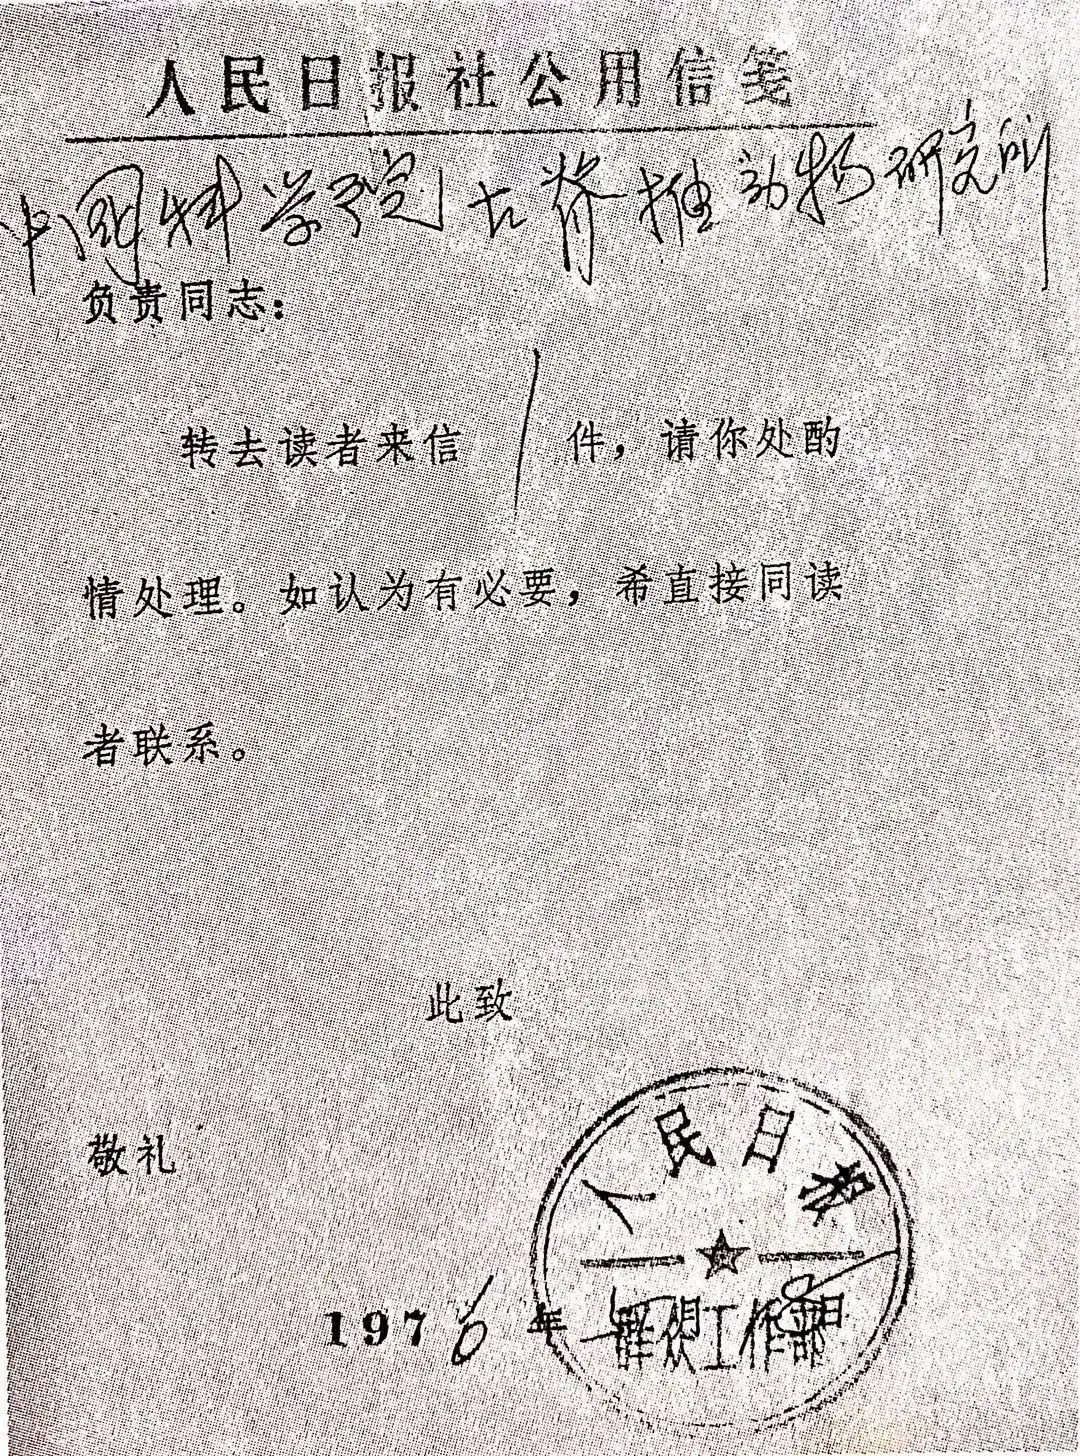 人民日报社公用信笺
中国科学院古脊椎动物研究所
负责同志：
转去读者来信 1 件，请你处酌
情处理。如认为有必要，希直接同读
者联系。
此致
敬礼
人民日报
群众工作部
1976年 月 日